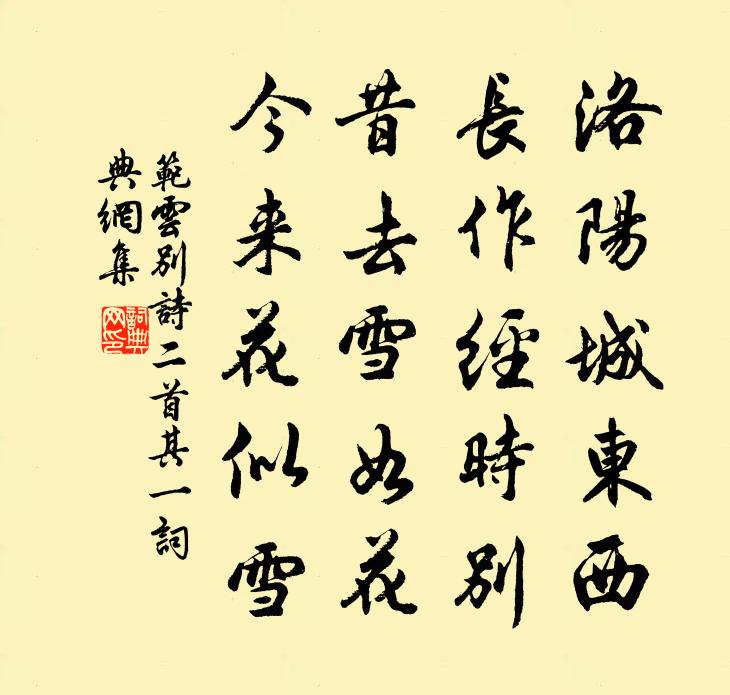 洛陽城東西
長作經時別
昔去雪如花
今来花似雪
範雲別詩二首其一詞
典網集
詞典
网印